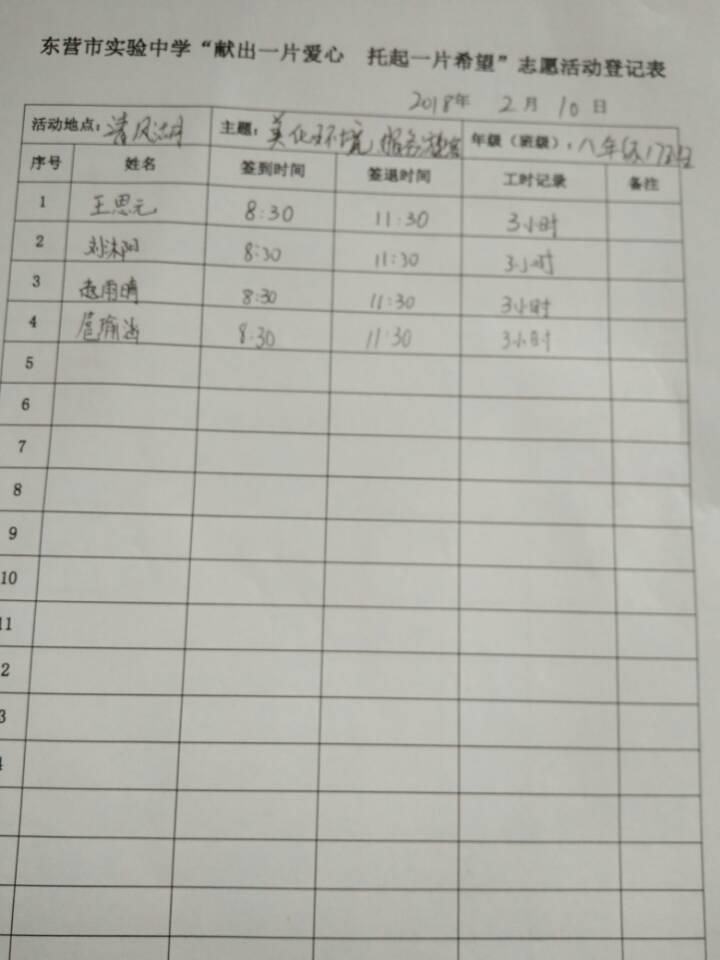 东营市实验中学“献出一片爱心 托起一片希望”志愿活动登记表
2018年 2月 10日
活动地点：清风湖 主题：美化环境 服务 年级（班级）：八年级17班
序号 姓名 签到时间 签退时间 工时记录 备注
1 王思元 8:30 11:30 3小时
2 刘沐阳 8:30 11:30 3小时
3 赵雨晴 8:30 11:30 3小时
4 8:30 11:30 3小时
5
6
7
8
9
10
11
2
3